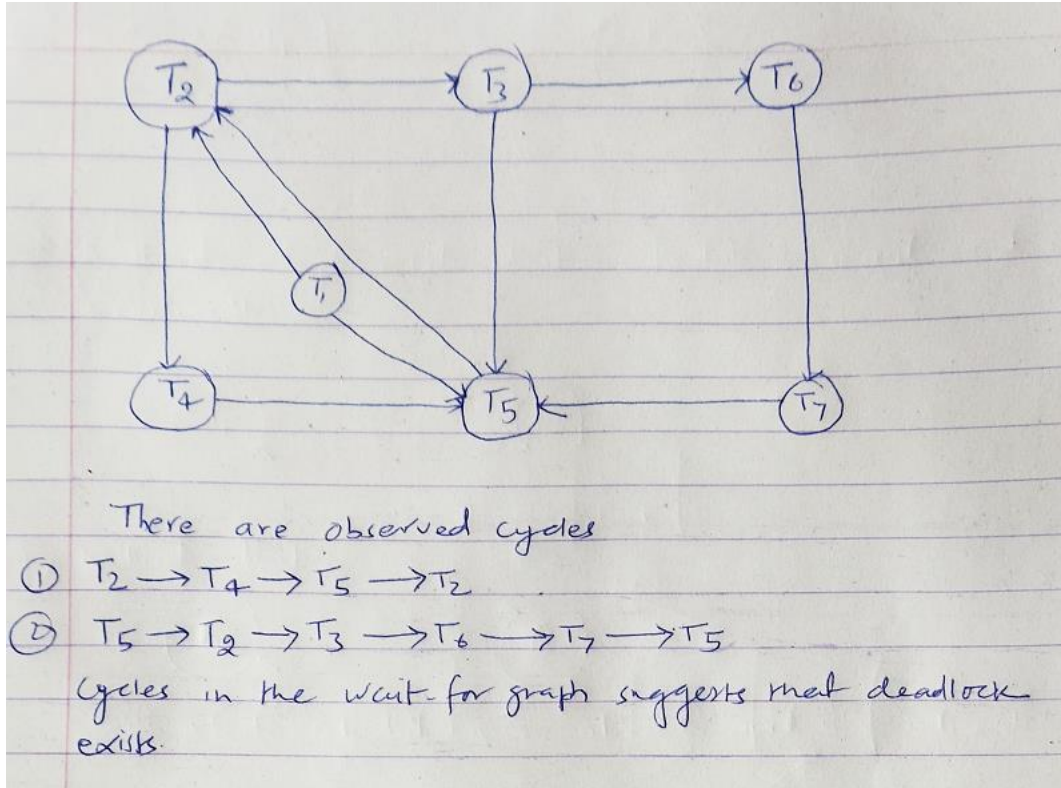 T2 T3 T6
T1
T4 T5 T7
There are observed cycles
① T2 → T4 → T5 → T2
② T5 → T2 → T3 → T6 → T7 → T5
Cycles in the wait-for graph suggests that deadlock
exists.